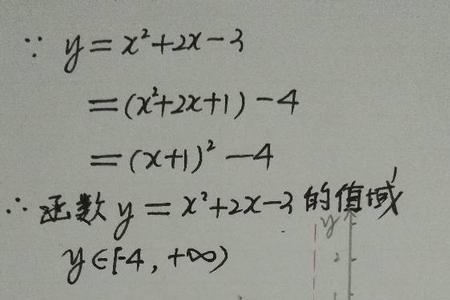 ∵ y = x²+2x-3
= (x²+2x+1) - 4
= (x+1)² - 4
∴ 函数 y = x²+2x-3 的值域
y∈[-4, +∞)
y
2